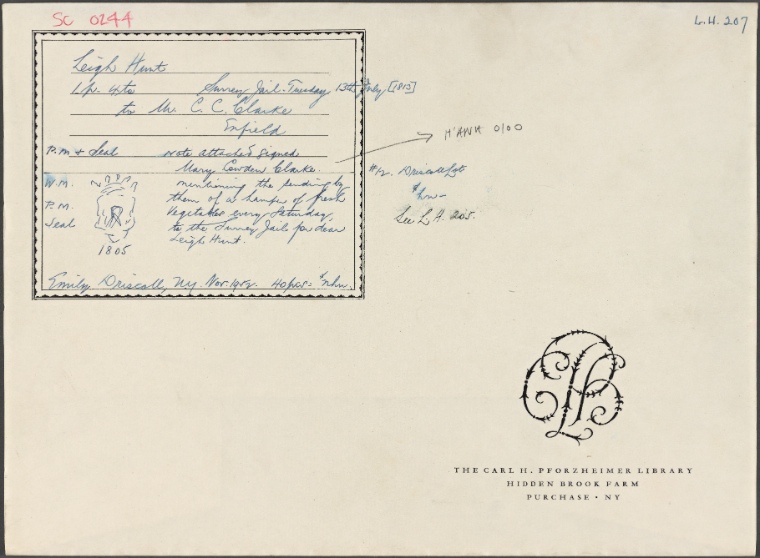 SC 0244
L.H. 207
Leigh Hunt
1 p. 4to Surrey Jail. Tuesday 13th July [1813]
to Mr. C. C. Clarke
Enfield
M'ANH 0100
P.M. & Seal note attached signed
Mary Cowden Clarke.
#12. Driscoll Lot
W.M. mentioning the sending by
P.M. them of a hamper of fresh
Seal Vegetables every Saturday
See L.H. 205.
to the Surrey Jail for dear
Leigh Hunt.
1805
Emily Driscoll, N.Y. Nov. 1952.
THE CARL H. PFORZHEIMER LIBRARY
HIDDEN BROOK FARM
PURCHASE • NY